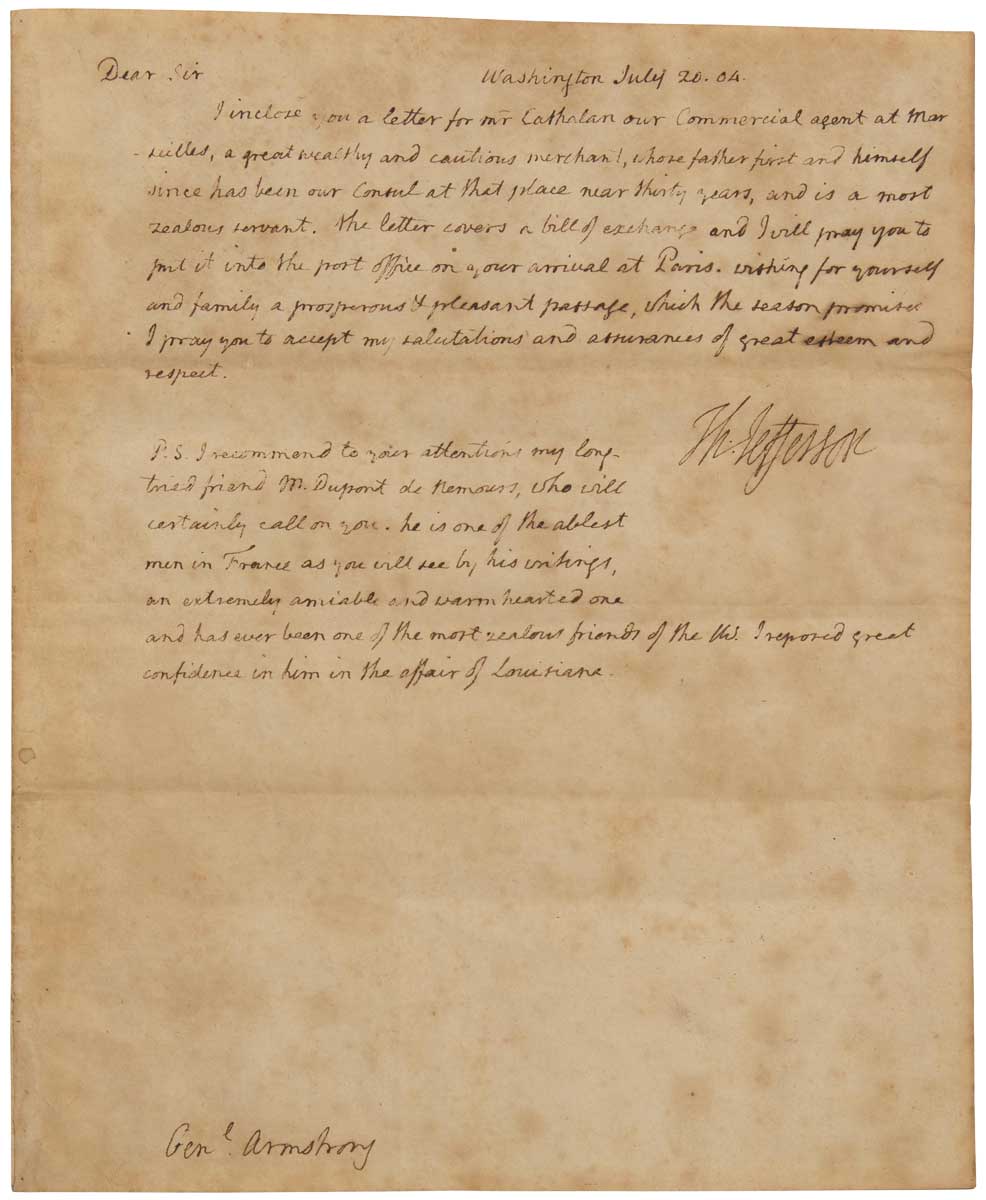 Dear Sir Washington July 20. 04.
I inclose you a letter for mr Cathalan our Commercial agent at Mar
-seilles, a great wealthy and cautious merchant, whose father first and himself
since has been our Consul at that place near thirty years, and is a most
zealous servant. the letter covers a bill of exchange and I will pray you to
put it into the post office on your arrival at Paris. wishing for yourself
and family a prosperous & pleasant passage, which the season promises
I pray you to accept my salutations and assurances of great esteem and
respect.
Th: Jefferson
P.S. I recommend to your attentions my long-
tried friend M. Dupont de Nemours, who will
certainly call on you. he is one of the ablest
men in France as you will see by his writings,
an extremely amiable and warm hearted one
and has ever been one of the most zealous friends of the US. I reposed great
confidence in him in the affair of Louisiana.
Genl. Armstrong